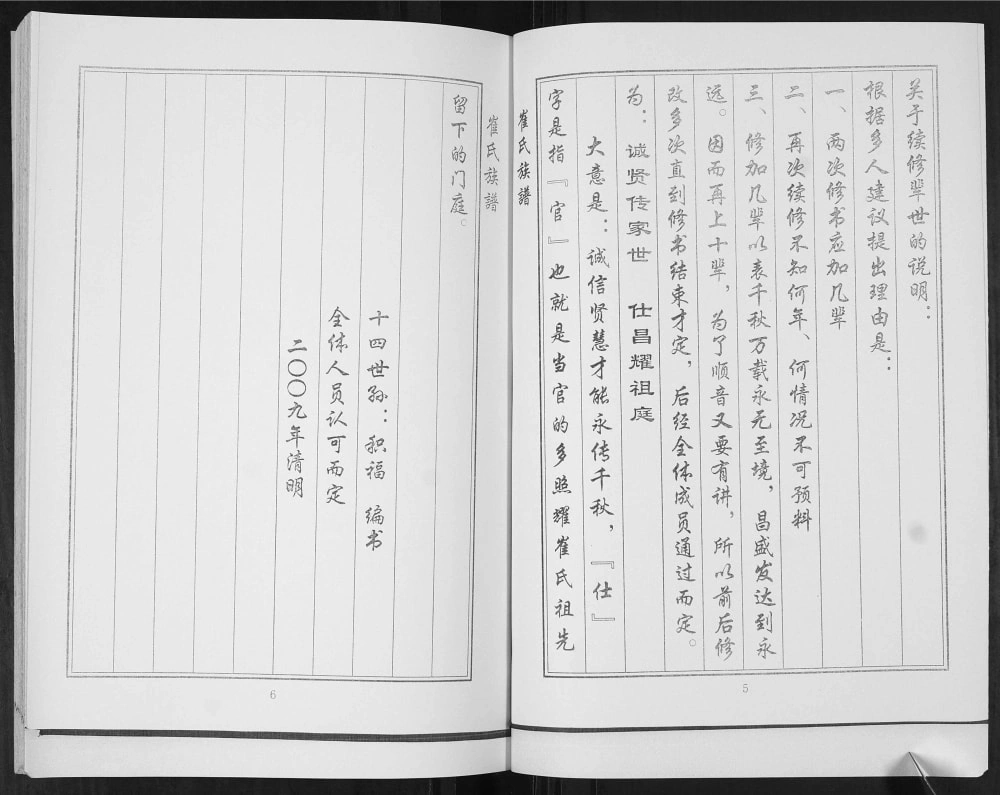 关于续修辈世的说明：
根据多人建议提出理由是：
一、两次修书应加几辈
二、再次续修不知何年、何情况不可预料
三、修加几辈以表千秋万载永无至境，昌盛发达到永
远。因而再上十辈，为了顺音又要有讲，所以前后修
改多次直到修书结束才定，后经全体成员通过而定。
为：诚贤传家世 仕昌耀祖庭
大意是：诚信贤慧才能永传千秋，『仕』
字是指『官』也就是当官的多照耀崔氏祖先
崔氏族譜
5
崔氏族譜
留下的门庭。
十四世孙：积福 编书
全体人员认可而定
二〇〇九年清明
6